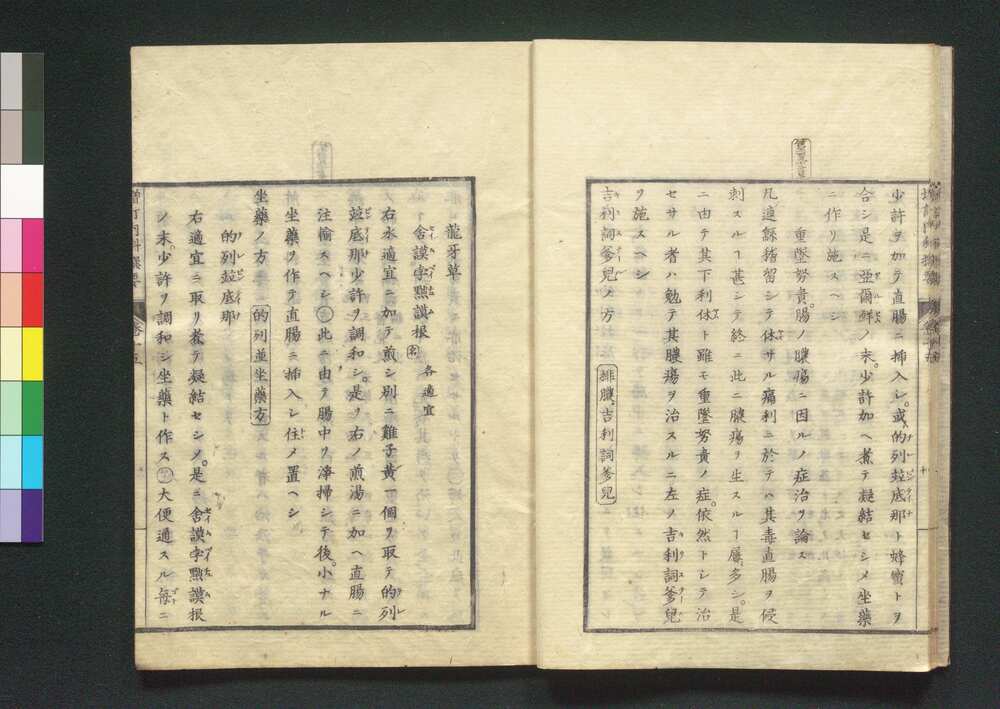 少許ヲ加テ直腸ニ挿入シ。或的列並底那ト蜂蜜トヲ
合シ是ニ亜爾鮮ノ末。少許加ヘ煮テ凝結セシメ坐藥
ニ作リ施スヘシ
重墜努責。腸ノ膿瘍ニ因ルノ症治ヲ論ス
凡連綿稽留シテ休サル痛利ニ於テハ其毒直腸ヲ侵
刺スルヿ甚シテ終ニ此ニ膿瘍ヲ生スルヿ屢多シ。是
ニ由テ其下利休ト雖モ重墜努責ノ症。依然トシテ治
セサル者ハ勉テ其膿瘍ヲ治スルニ左ノ吉利詞爹児
ヲ施スヘシ
吉利詞爹児ノ方 排膿吉利詞爹児
龍牙草
舎謨字㸃謨根 各適宜
右水適宜ニ加テ煎シ別ニ雞子黄一個ヲ取テ的列
並底那少許ヲ調和シ。是ヲ右ノ煎湯ニ加ヘ直腸ニ
注輸スヘシ 此ニ由テ腸中ヲ淨掃シテ後。小ナル
坐藥ヲ作テ直腸ニ挿入シ住メ置ヘシ
坐藥ノ方 的列並坐藥方
的列並底那
右適宜ニ取リ煮テ凝結セシメ。是ニ舎謨字㸃謨根
ノ末。少許ヲ調和シ坐藥ト作ス 大便通スル毎ニ